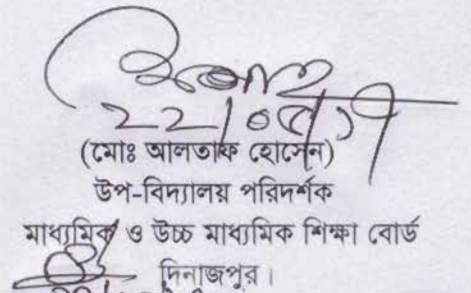 (মোঃ আলতাফ হোসেন)
উপ-বিদ্যালয় পরিদর্শক
মাধ্যমিক ও উচ্চ মাধ্যমিক শিক্ষা বোর্ড
দিনাজপুর।